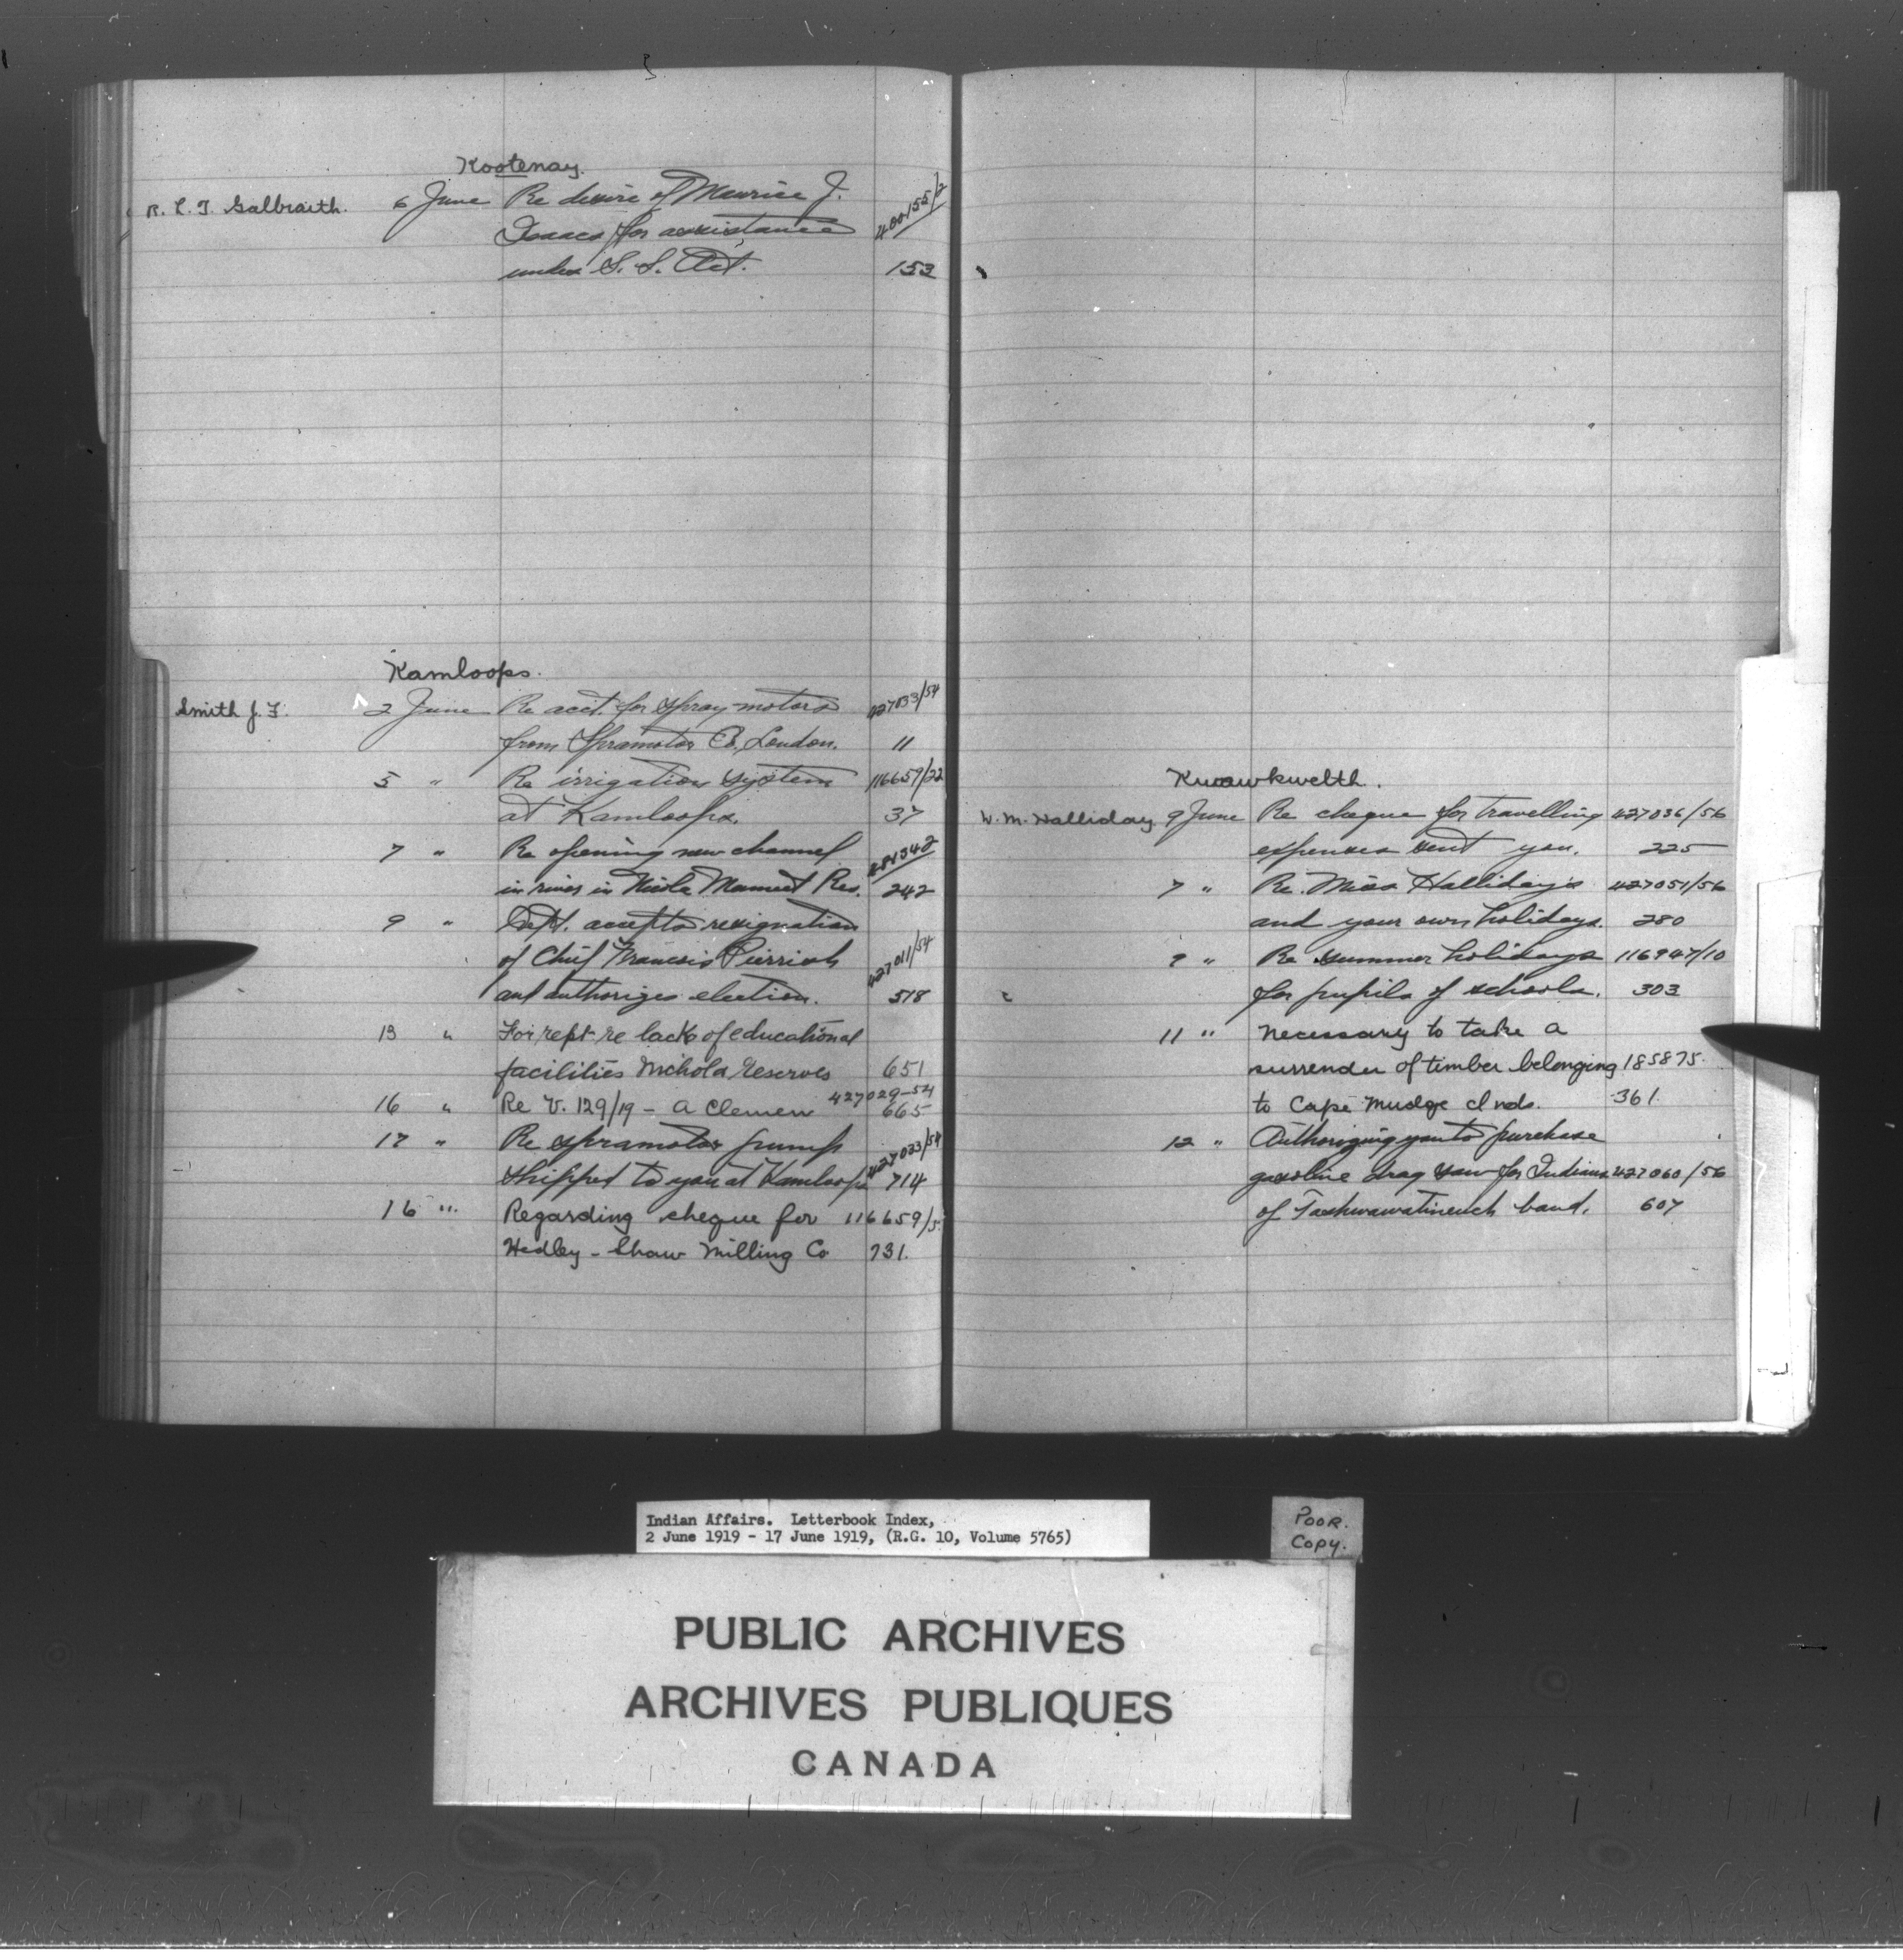 Kootenay.
R. L. T. Galbraith. 6 June Re desire of Maurice J. 400155/2
Isaacs for assistance
under S. S. Act. 153
Kamloops.
Smith J. F. 2 June Re acct. for spray motors 427033/54
from Spramotor Co, London. 11
5 " Re irrigation system 116659/22
at Kamloops. 37
7 " Re opening new channel
in river in Nicola Mameet Res. 242
9 " Dept. accepts resignation
of Chief Francois Pierrish 427011/54
and authorizes election. 518
13 " For rept re lack of educational
facilities Nichola reserves 651
16 " Re V. 129/19 - A Clemens 427029-54
665
17 " Re spramotor pump 427033/54
shipped to you at Kamloops 714
16 " Regarding cheque for 116659/5
Hedley - Shaw Milling Co 731.
Kwawkwelth.
W. M. Halliday 9 June Re cheque for travelling 427036/56
expenses sent you. 225
7 " Re. Miss Halliday's 427051/56
and your own holidays. 280
9 " Re summer holidays 116947/10
for pupils of schools. 303
11 " Necessary to take a
surrender of timber belonging 185875.
to Cape Mudge Inds. 361.
12 " Authorizing you to purchase
gasoline drag saw for Indians 427060/56
of band. 607
Indian Affairs. Letterbook Index,
2 June 1919 - 17 June 1919, (R.G. 10, Volume 5765)
POOR.
COPY.
PUBLIC ARCHIVES
ARCHIVES PUBLIQUES
CANADA